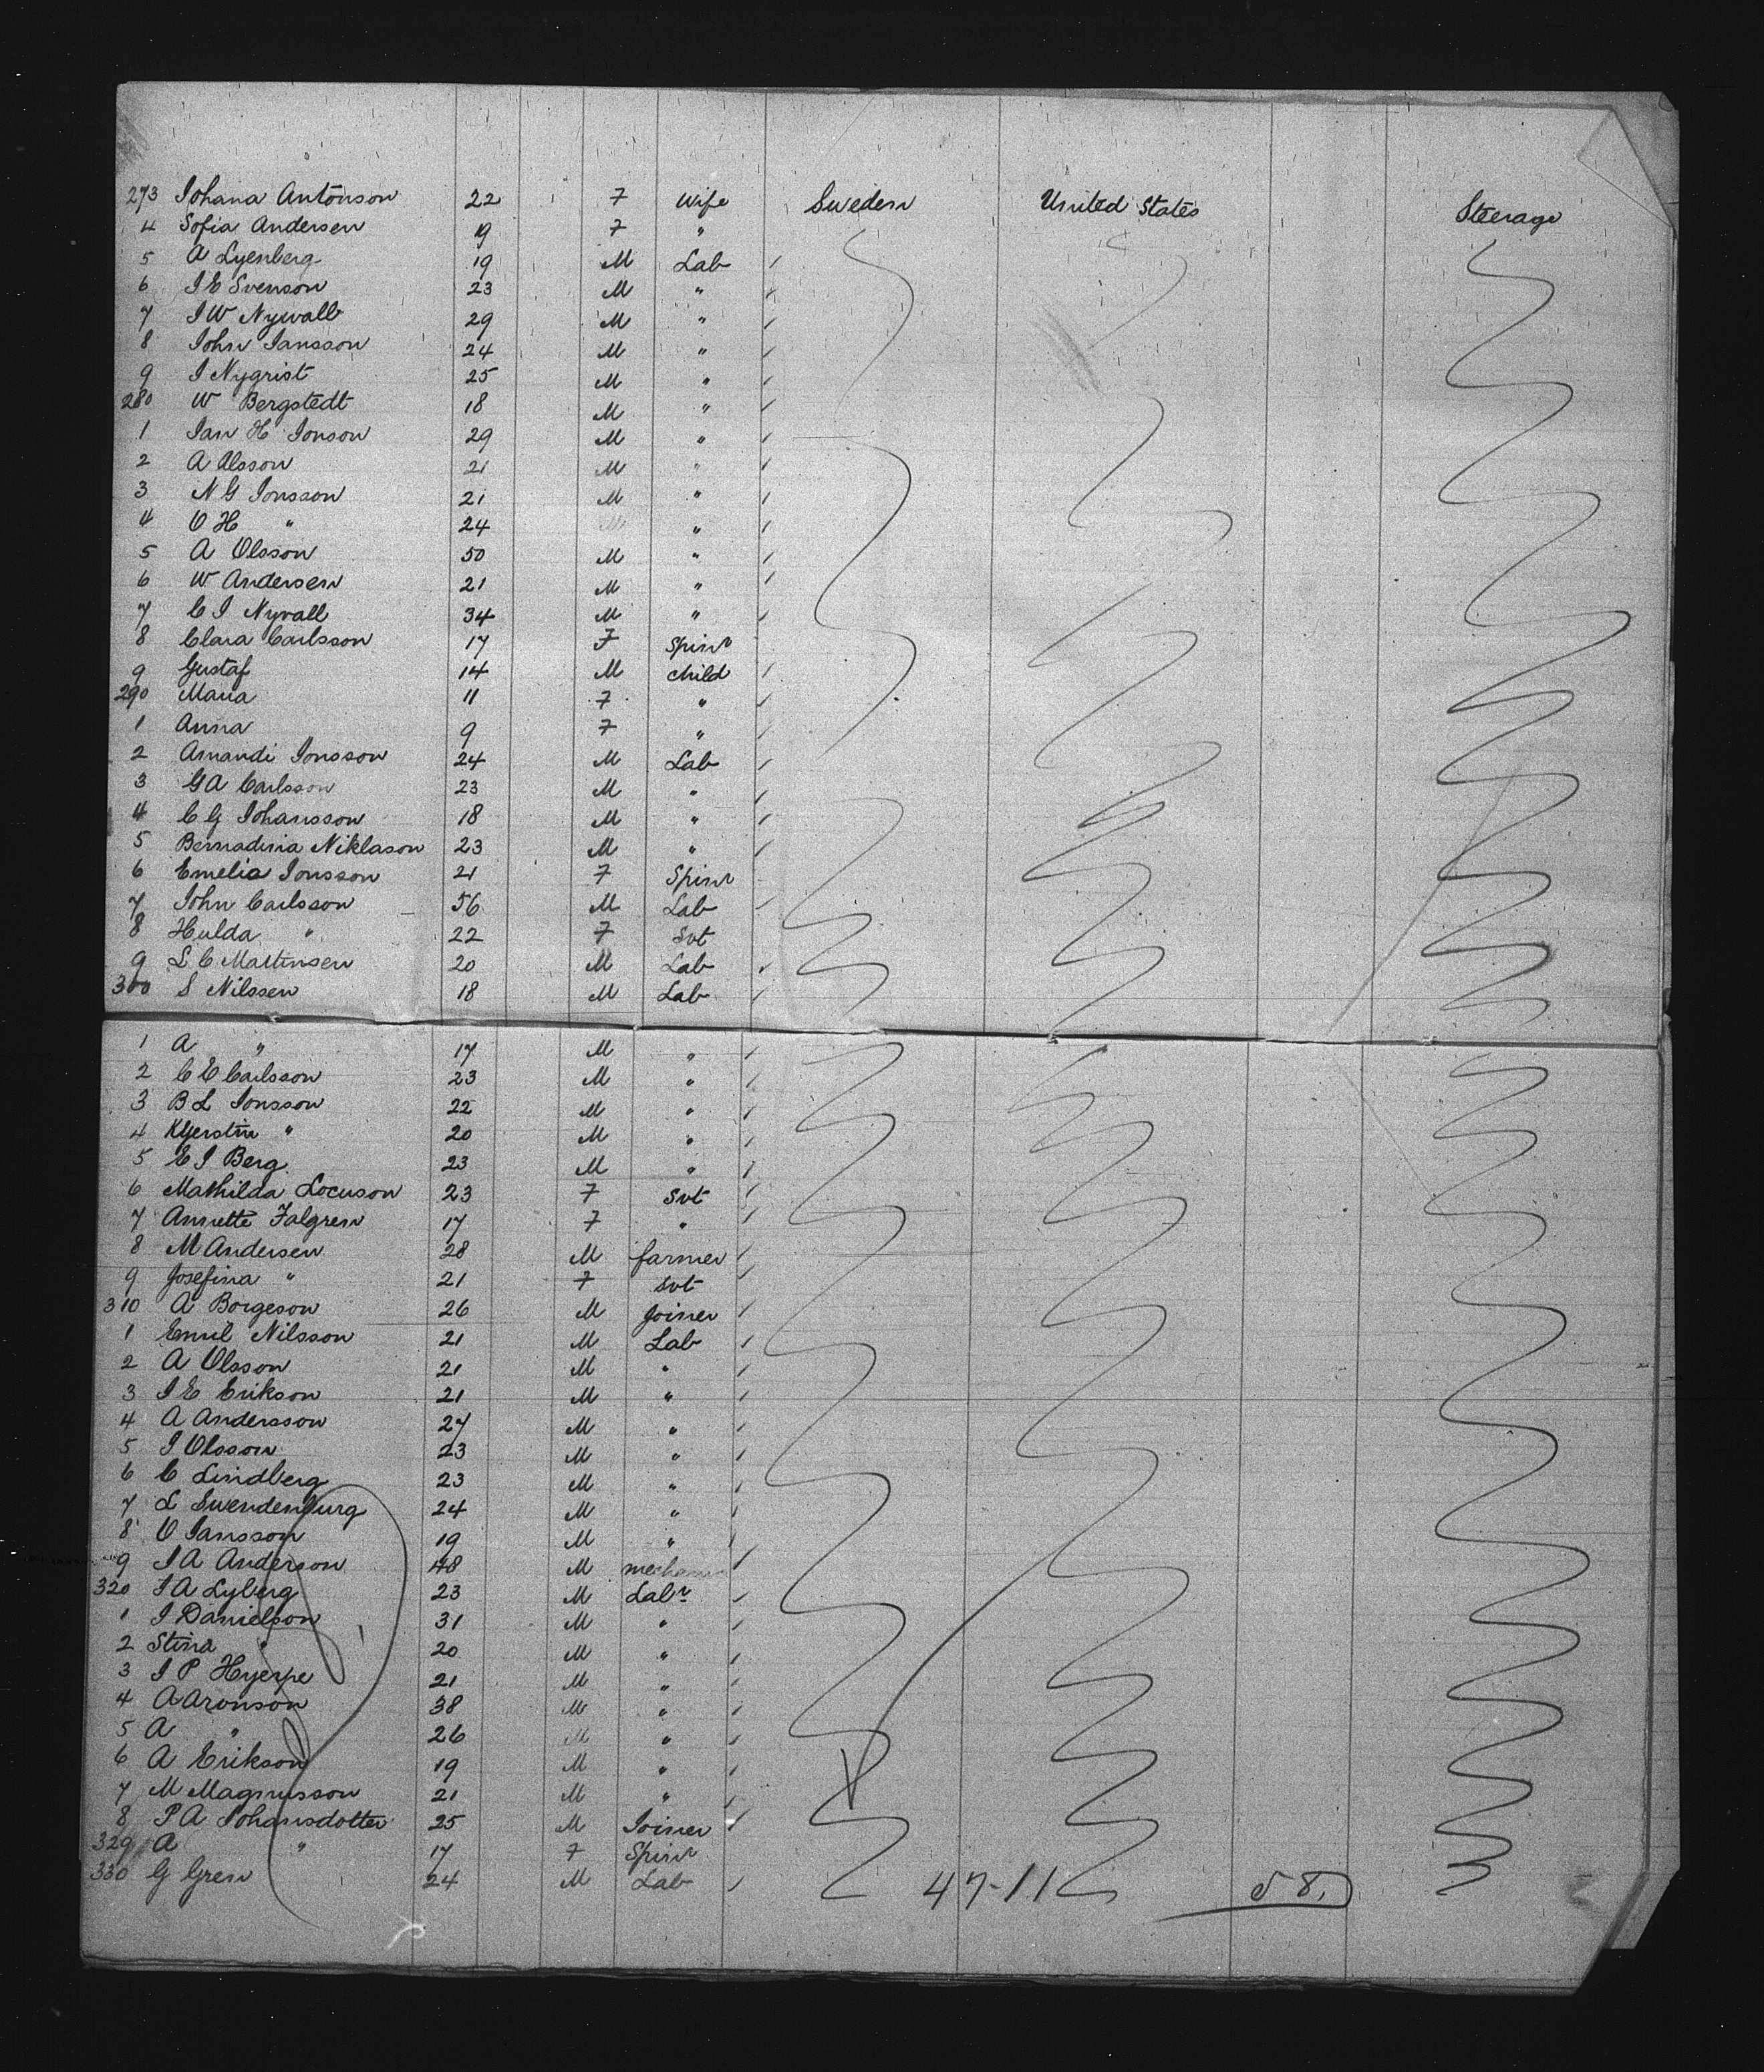 273 Johana Antonson 22 F Wife Sweden United States Steerage
4 Sofia Andersen 19 F "
5 A Lyenberg 19 M Lab
6 J E Svenson 23 M "
7 J W Nywall 29 M "
8 John Jansson 24 M "
9 J Nygrist 25 M "
280 W Bergstedt 18 M "
1 Jan H Jonson 29 M "
2 A Olsson 21 M "
3 N G Jonsson 21 M "
4 O H " 24 M "
5 A Olsson 50 M "
6 W Andersen 21 M "
7 C J Nyvall 34 M "
8 Clara Carlsson 17 F Spinr
9 Gustaf 14 M child
290 Maria 11 F "
1 Anna 9 F "
2 Amandi Jonsson 24 M Lab
3 G A Carlsson 23 M "
4 C G Johansson 18 M "
5 Bernadina Niklason 23 M "
6 Emelia Jonsson 21 F Spinr
7 John Carlsson 56 M Lab
8 Hulda " 22 F Svt
9 L C Martinsen 20 M Lab
300 S Nilssen 18 M Lab
1 A " 17 M "
2 C E Carlsson 23 M "
3 B L Jonsson 22 M "
4 Kyerstin " 20 M "
5 E J Berg 23 M "
6 Mathilda Locuson 23 F Svt
7 Annette Falgren 17 F "
8 M Andersen 28 M farmer
9 Josefina " 21 F Svt
310 A Borgeson 26 M Joiner
1 Emil Nilsson 21 M Lab
2 A Olsson 21 M "
3 J E Erikson 21 M "
4 A Andersson 27 M "
5 J Olsson 23 M "
6 C Lindberg 23 M "
7 L Swendenburg 24 M "
8 O Jansson 19 M "
9 J A Anderson 48 M mechanic
320 J A Lyberg 23 M Labr
1 J Danielson 31 M "
2 Stina " 20 M "
3 J P Hyerpe 21 M "
4 A Aronson 38 M "
5 A " 26 M "
6 A Erikson 19 M "
7 M Magnusson 21 M "
8 P A Johansdotter 25 M Joiner
329 A " 17 F Spinr
330 G Gren 24 M Lab 47-11 58